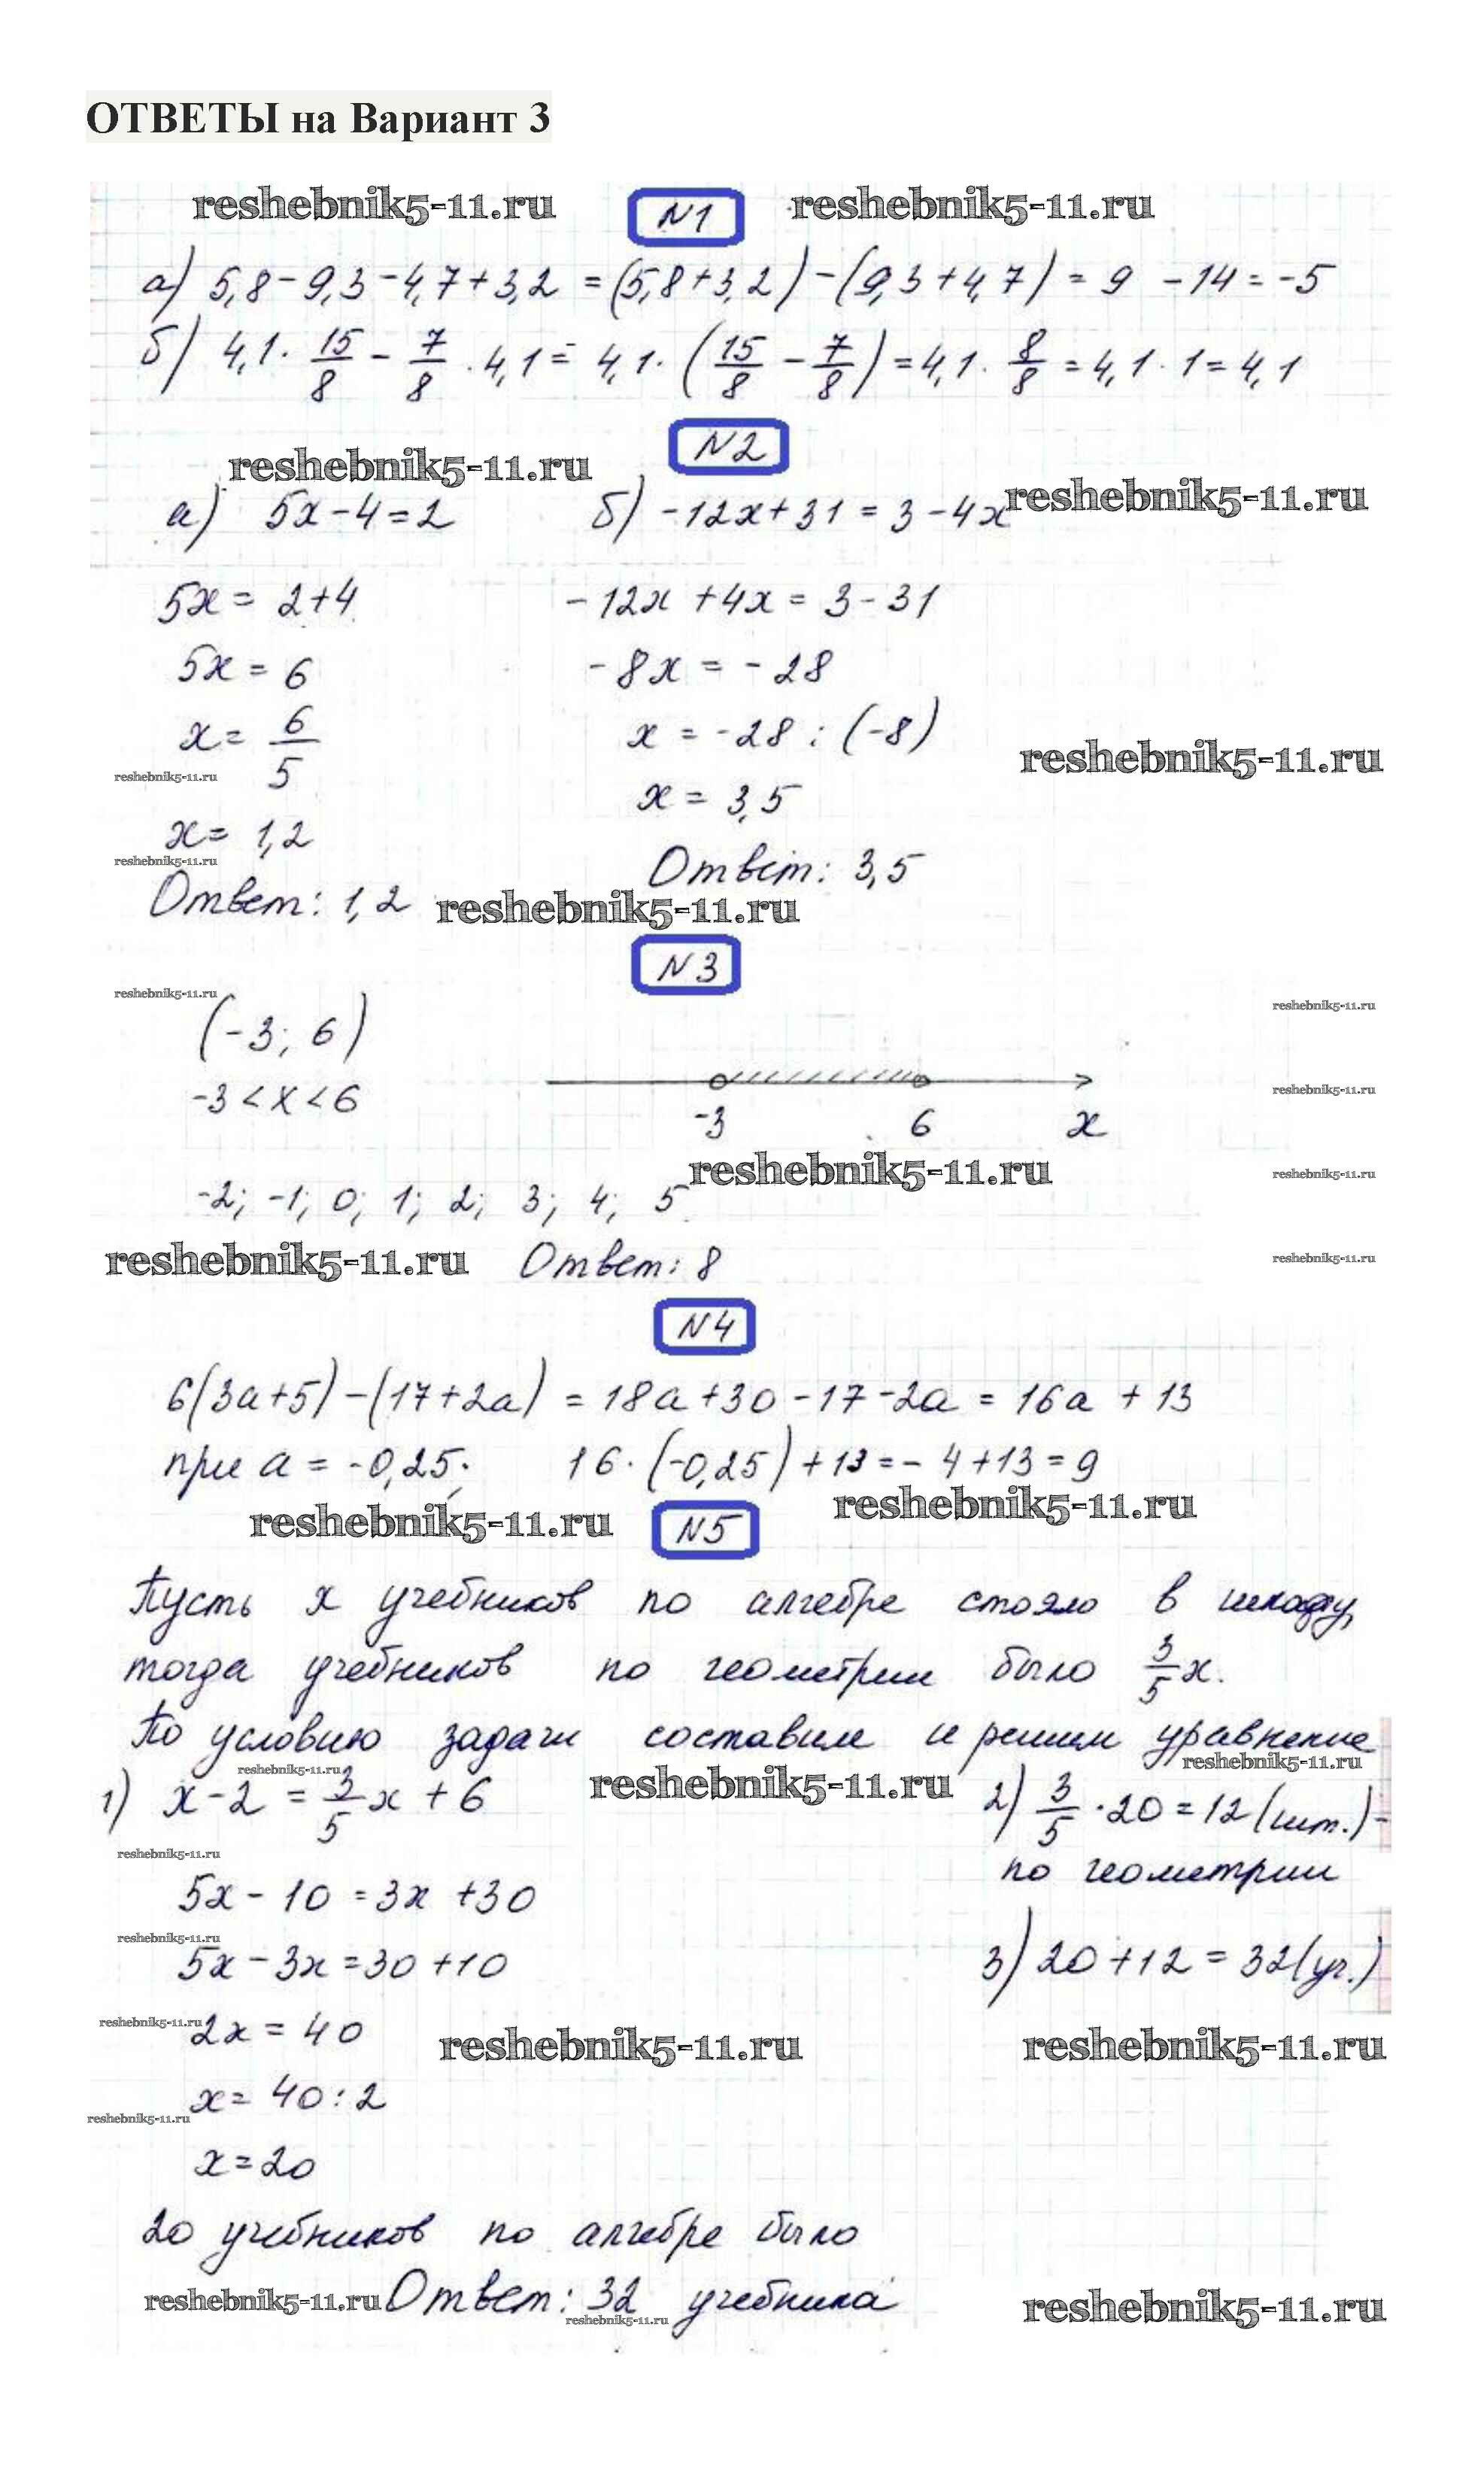 ОТВЕТЫ на Вариант 3
reshebnik5-11.ru №1 reshebnik5-11.ru
а) 5,8 - 9,3 - 4,7 + 3,2 = (5,8 + 3,2) - (9,3 + 4,7) = 9 - 14 = -5
б) 4,1 · 15/8 - 7/8 · 4,1 = 4,1 · (15/8 - 7/8) = 4,1 · 8/8 = 4,1 · 1 = 4,1
№2
reshebnik5-11.ru
reshebnik5-11.ru
а) 5x - 4 = 2 б) -12x + 31 = 3 - 4x
5x = 2 + 4 -12x + 4x = 3 - 31
5x = 6 -8x = -28
x = 6/5 x = -28 : (-8)
reshebnik5-11.ru
reshebnik5-11.ru
x = 3,5
x = 1,2
reshebnik5-11.ru
Ответ: 3,5
Ответ: 1,2 reshebnik5-11.ru
№3
reshebnik5-11.ru
reshebnik5-11.ru
(-3; 6)
-3 < x < 6
reshebnik5-11.ru
-3 6 x
reshebnik5-11.ru
reshebnik5-11.ru
-2; -1; 0; 1; 2; 3; 4; 5
reshebnik5-11.ru Ответ: 8
reshebnik5-11.ru
№4
6(3a + 5) - (17 + 2a) = 18a + 30 - 17 - 2a = 16a + 13
при a = -0,25; 16 · (-0,25) + 13 = -4 + 13 = 9
reshebnik5-11.ru №5 reshebnik5-11.ru
Пусть x учебников по алгебре стояло в шкафу,
тогда учебников по геометрии было 3/5 x.
По условию задачи составим и решим уравнение
reshebnik5-11.ru reshebnik5-11.ru reshebnik5-11.ru
1) x - 2 = 3/5 x + 6 2) 3/5 · 20 = 12 (шт.) -
reshebnik5-11.ru
по геометрии
5x - 10 = 3x + 30
reshebnik5-11.ru
5x - 3x = 30 + 10 3) 20 + 12 = 32 (уч.)
reshebnik5-11.ru
2x = 40
reshebnik5-11.ru reshebnik5-11.ru
x = 40 : 2
reshebnik5-11.ru
x = 20
20 учебников по алгебре было
reshebnik5-11.ru Ответ: 32 учебника
reshebnik5-11.ru
reshebnik5-11.ru